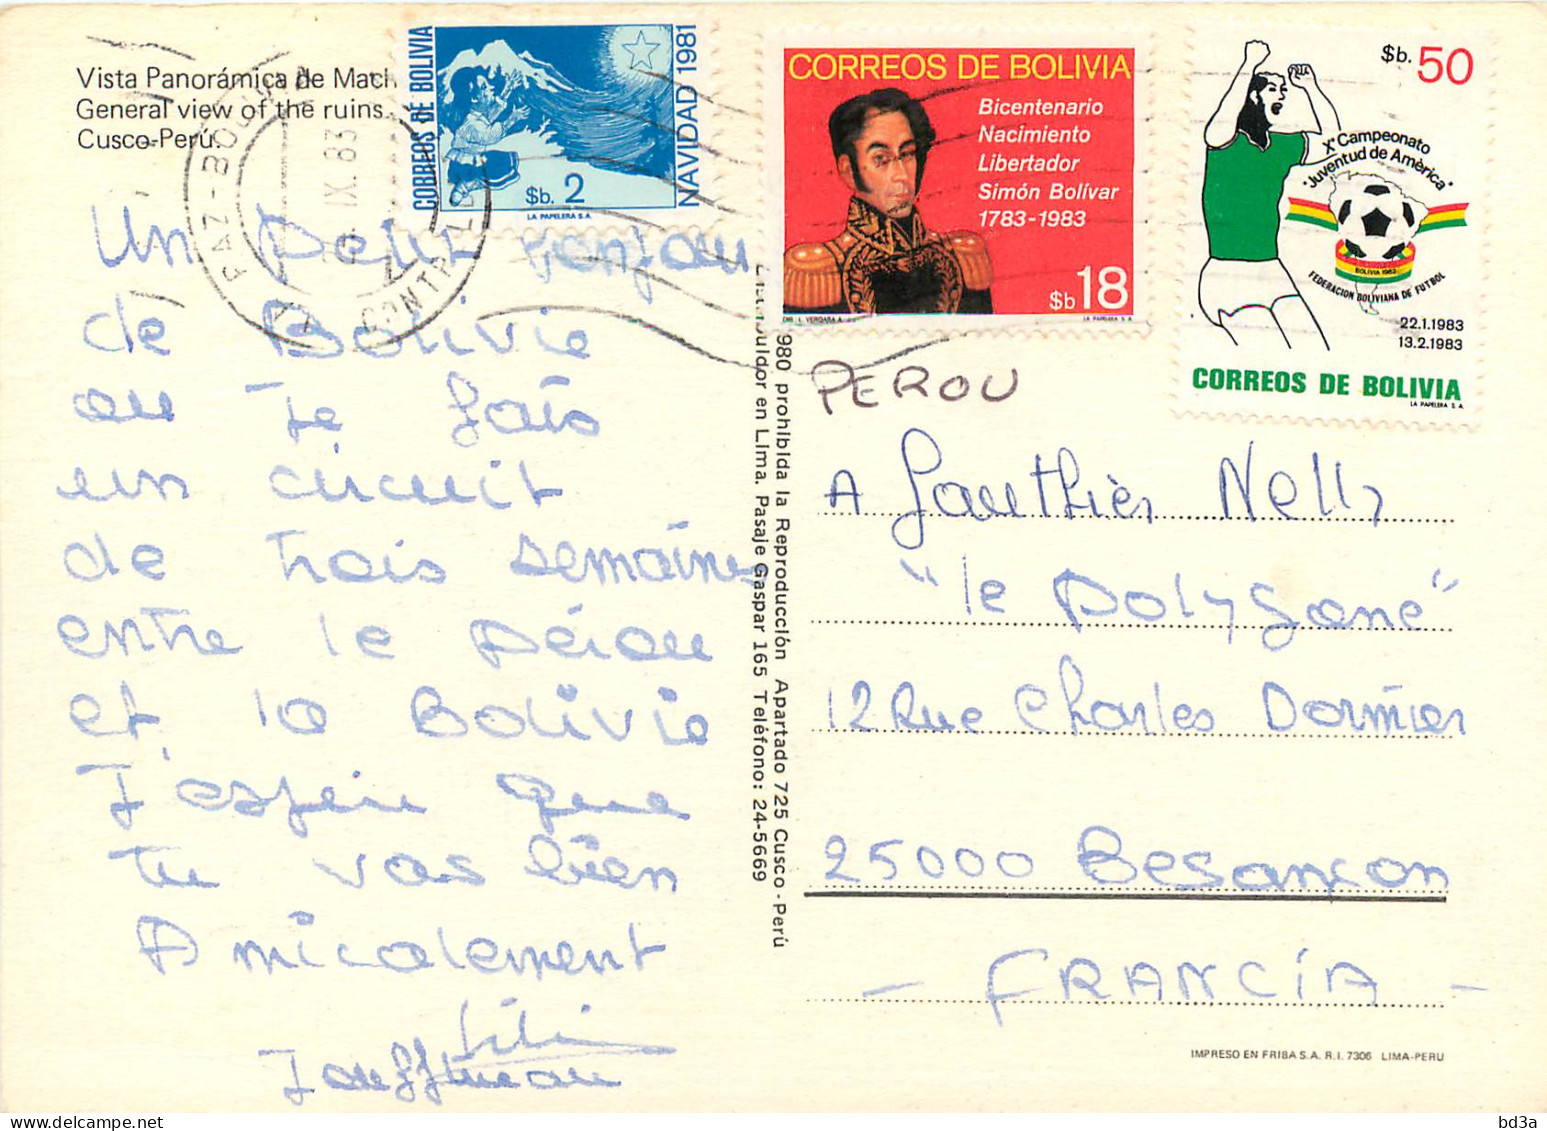 Vista Panorámica de Mach
General view of the ruins.
Cusco-Perú.
CORREOS DE BOLIVIA
NAVIDAD 1981
$b. 2
LA PAPELERA S.A.
CORREOS DE BOLIVIA
Bicentenario
Nacimiento
Libertador
Simón Bolívar
1783-1983
$b 18
LA PAPELERA S.A.
$b. 50
Xº Campeonato
"Juventud de Amèrica"
BOLIVIA 1983
FEDERACION BOLIVIANA DE FUTBOL
22.1.1983
13.2.1983
CORREOS DE BOLIVIA
LA PAPELERA S.A.
IX. 83
Un petit bonjour
de Bolivie
ou Je fais
un circuit
de trois semaines
entre le pérou
et la Bolivie
J'espère que
tu vas bien
Amicalement
Lili
980 prohibida la Reproducción Apartado 725 Cusco - Perú
Distribuidor en Lima. Pasaje Gaspar 165 Teléfono: 24-5669
PEROU
A Gauthièr Nelly
"le polygone"
12 Rue Charles Dornier
25000 Besançon
- FRANCÍA -
IMPRESO EN FRIBA S.A. R.I. 7306 LIMA-PERU
bd3a